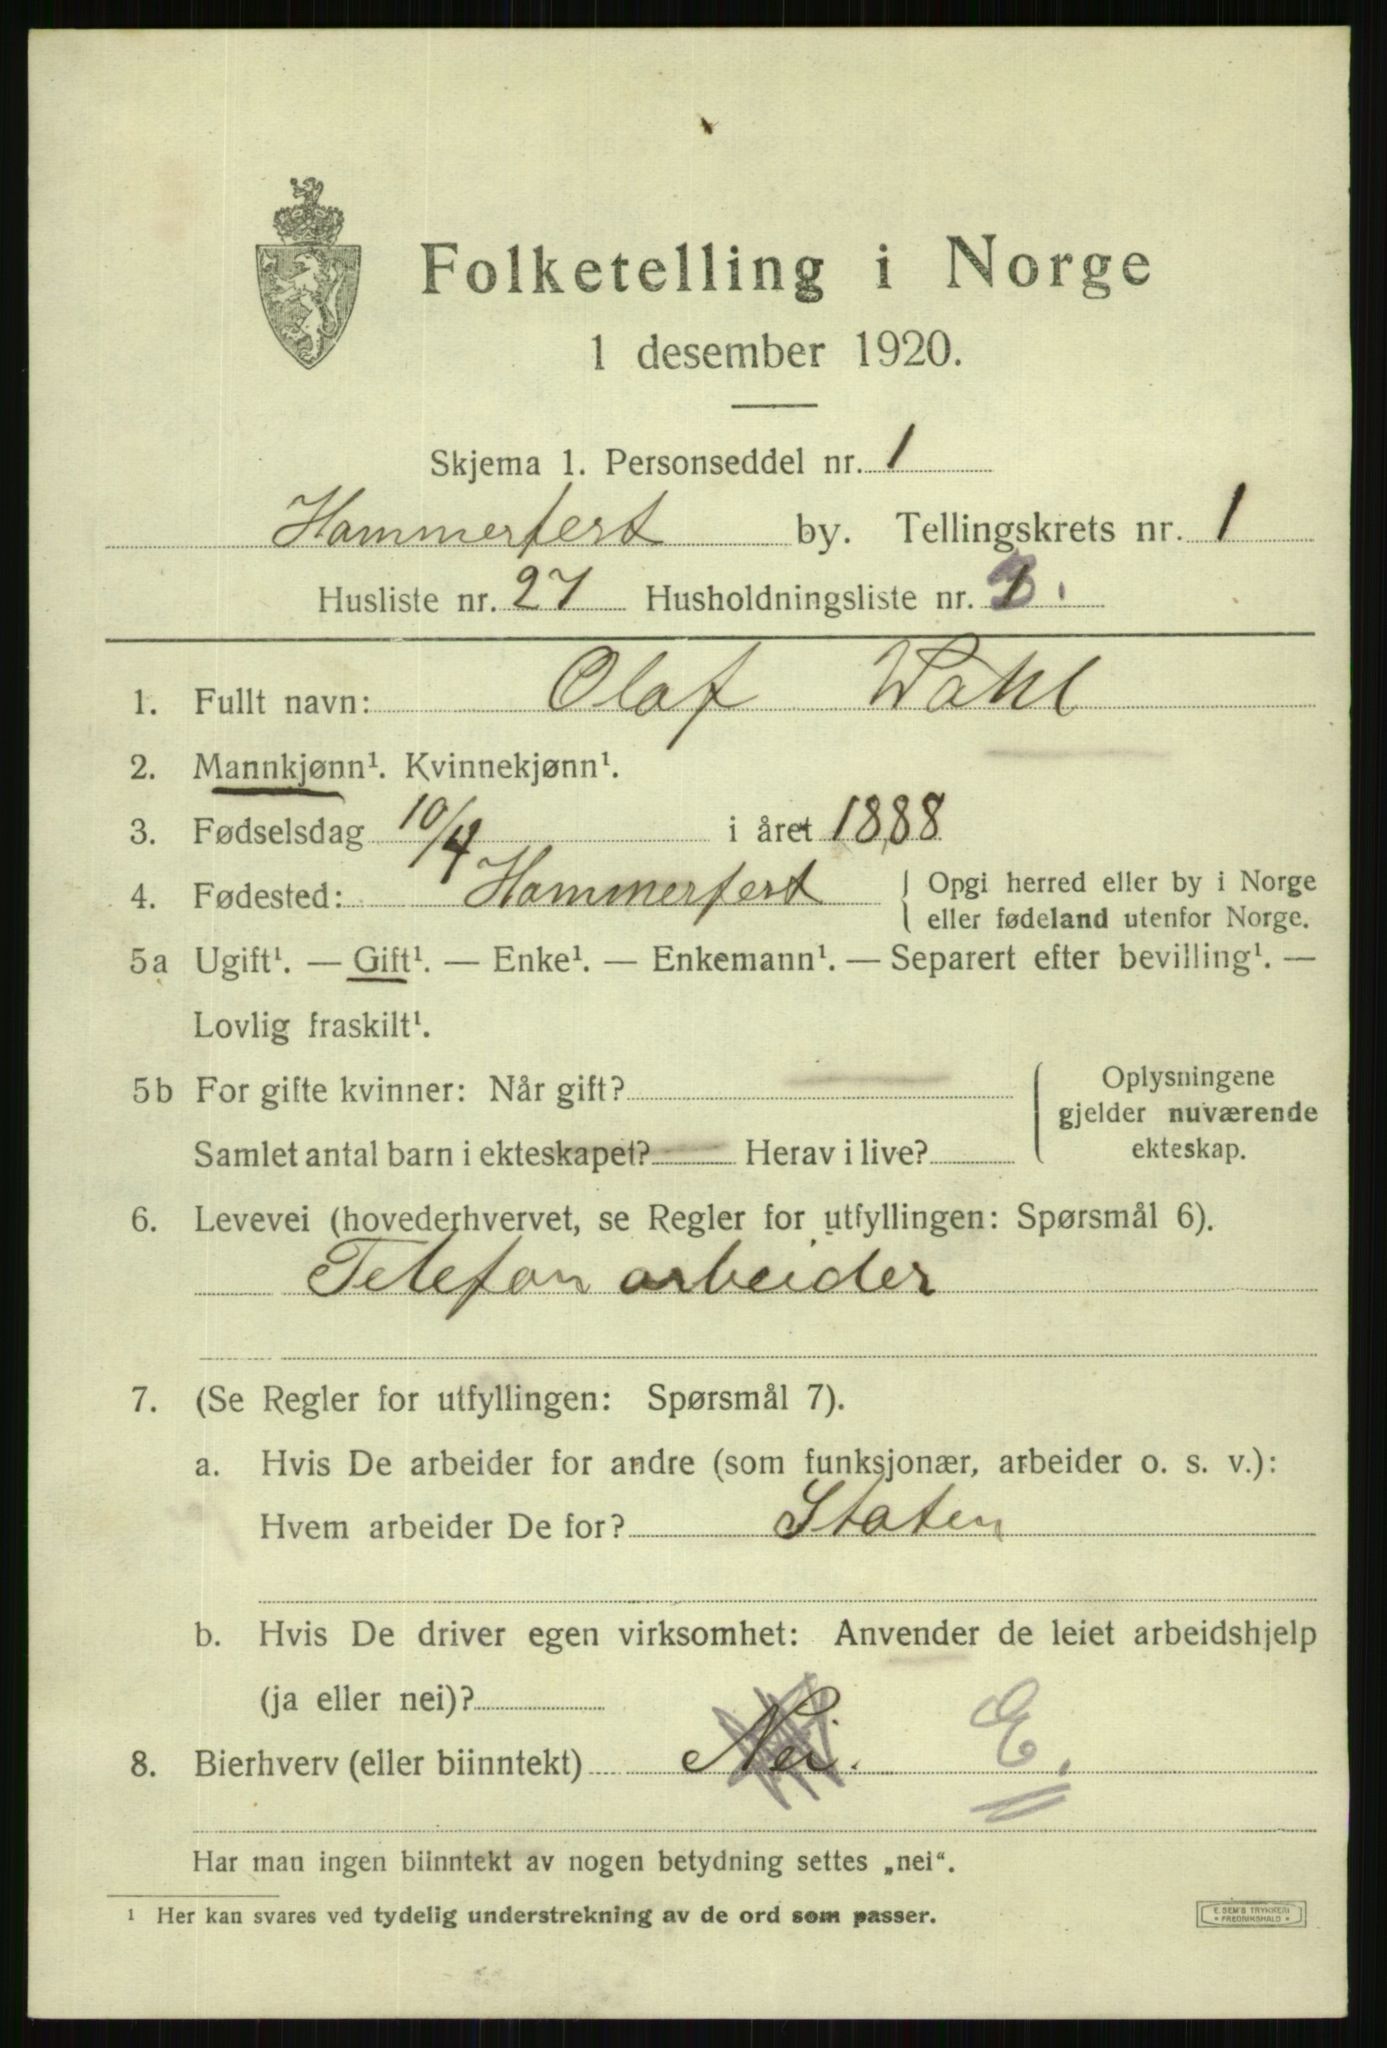 Folketelling i Norge
1 desember 1920.
Skjema 1. Personseddel nr. 1
Hammerfest by. Tellingskrets nr. 1
Husliste nr. 27 Husholdningsliste nr.
1. Fullt navn: Olaf Wahl
2. Mannkjønn¹. Kvinnekjønn¹.
3. Fødselsdag 10/4 i året 1888
4. Fødested: Hammerfest { Opgi herred eller by i Norge
eller fødeland utenfor Norge.
5a Ugift¹. — Gift¹. — Enke¹. — Enkemann¹. — Separert efter bevilling¹. —
Lovlig fraskilt¹.
5b For gifte kvinner: Når gift? { Oplysningene
gjelder nuværende
ekteskap.
Samlet antal barn i ekteskapet? Herav i live?
6. Levevei (hovederhvervet, se Regler for utfyllingen: Spørsmål 6).
Telefonarbeider
7. (Se Regler for utfyllingen: Spørsmål 7).
a. Hvis De arbeider for andre (som funksjonær, arbeider o. s. v.):
Hvem arbeider De for? Staten
b. Hvis De driver egen virksomhet: Anvender de leiet arbeidshjelp
(ja eller nei)?
8. Bierhverv (eller biinntekt) Nei. E.
Har man ingen biinntekt av nogen betydning settes „nei“.
¹ Her kan svares ved tydelig understrekning av de ord som passer.
E. SEM'S TRYKKERI
• FREDRIKSHALD •